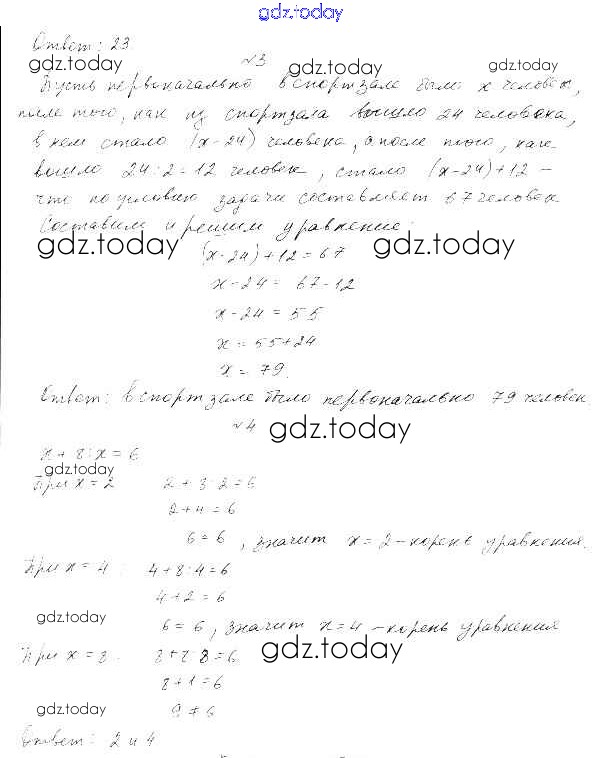 gdz.today
Ответ: 23
gdz.today gdz.today gdz.today
№3
Пусть первоначально в спортзале было x человек,
после того, как из спортзала вышло 24 человека,
в нем стало (x-24) человека, а после того, как
вышло 24:2=12 человек, стало (x-24)+12 -
что по условию задачи составляет 67 человек
Составим и решим уравнение:
gdz.today gdz.today
(x-24)+12=67
x-24= 67-12
x-24=55
x=55+24
x=79.
Ответ: в спортзале было первоначально 79 человек
№4
gdz.today
x+8:x=6
gdz.today
При x=2 2+8:2=6
2+4=6
6=6, значит x=2-корень уравнения.
При x=4: 4+8:4=6
4+2=6
gdz.today
6=6, значит x=4-корень уравнения
При x=8. 8+8:8=6
gdz.today
8+1=6
gdz.today
9≠6
Ответ: 2 и 4